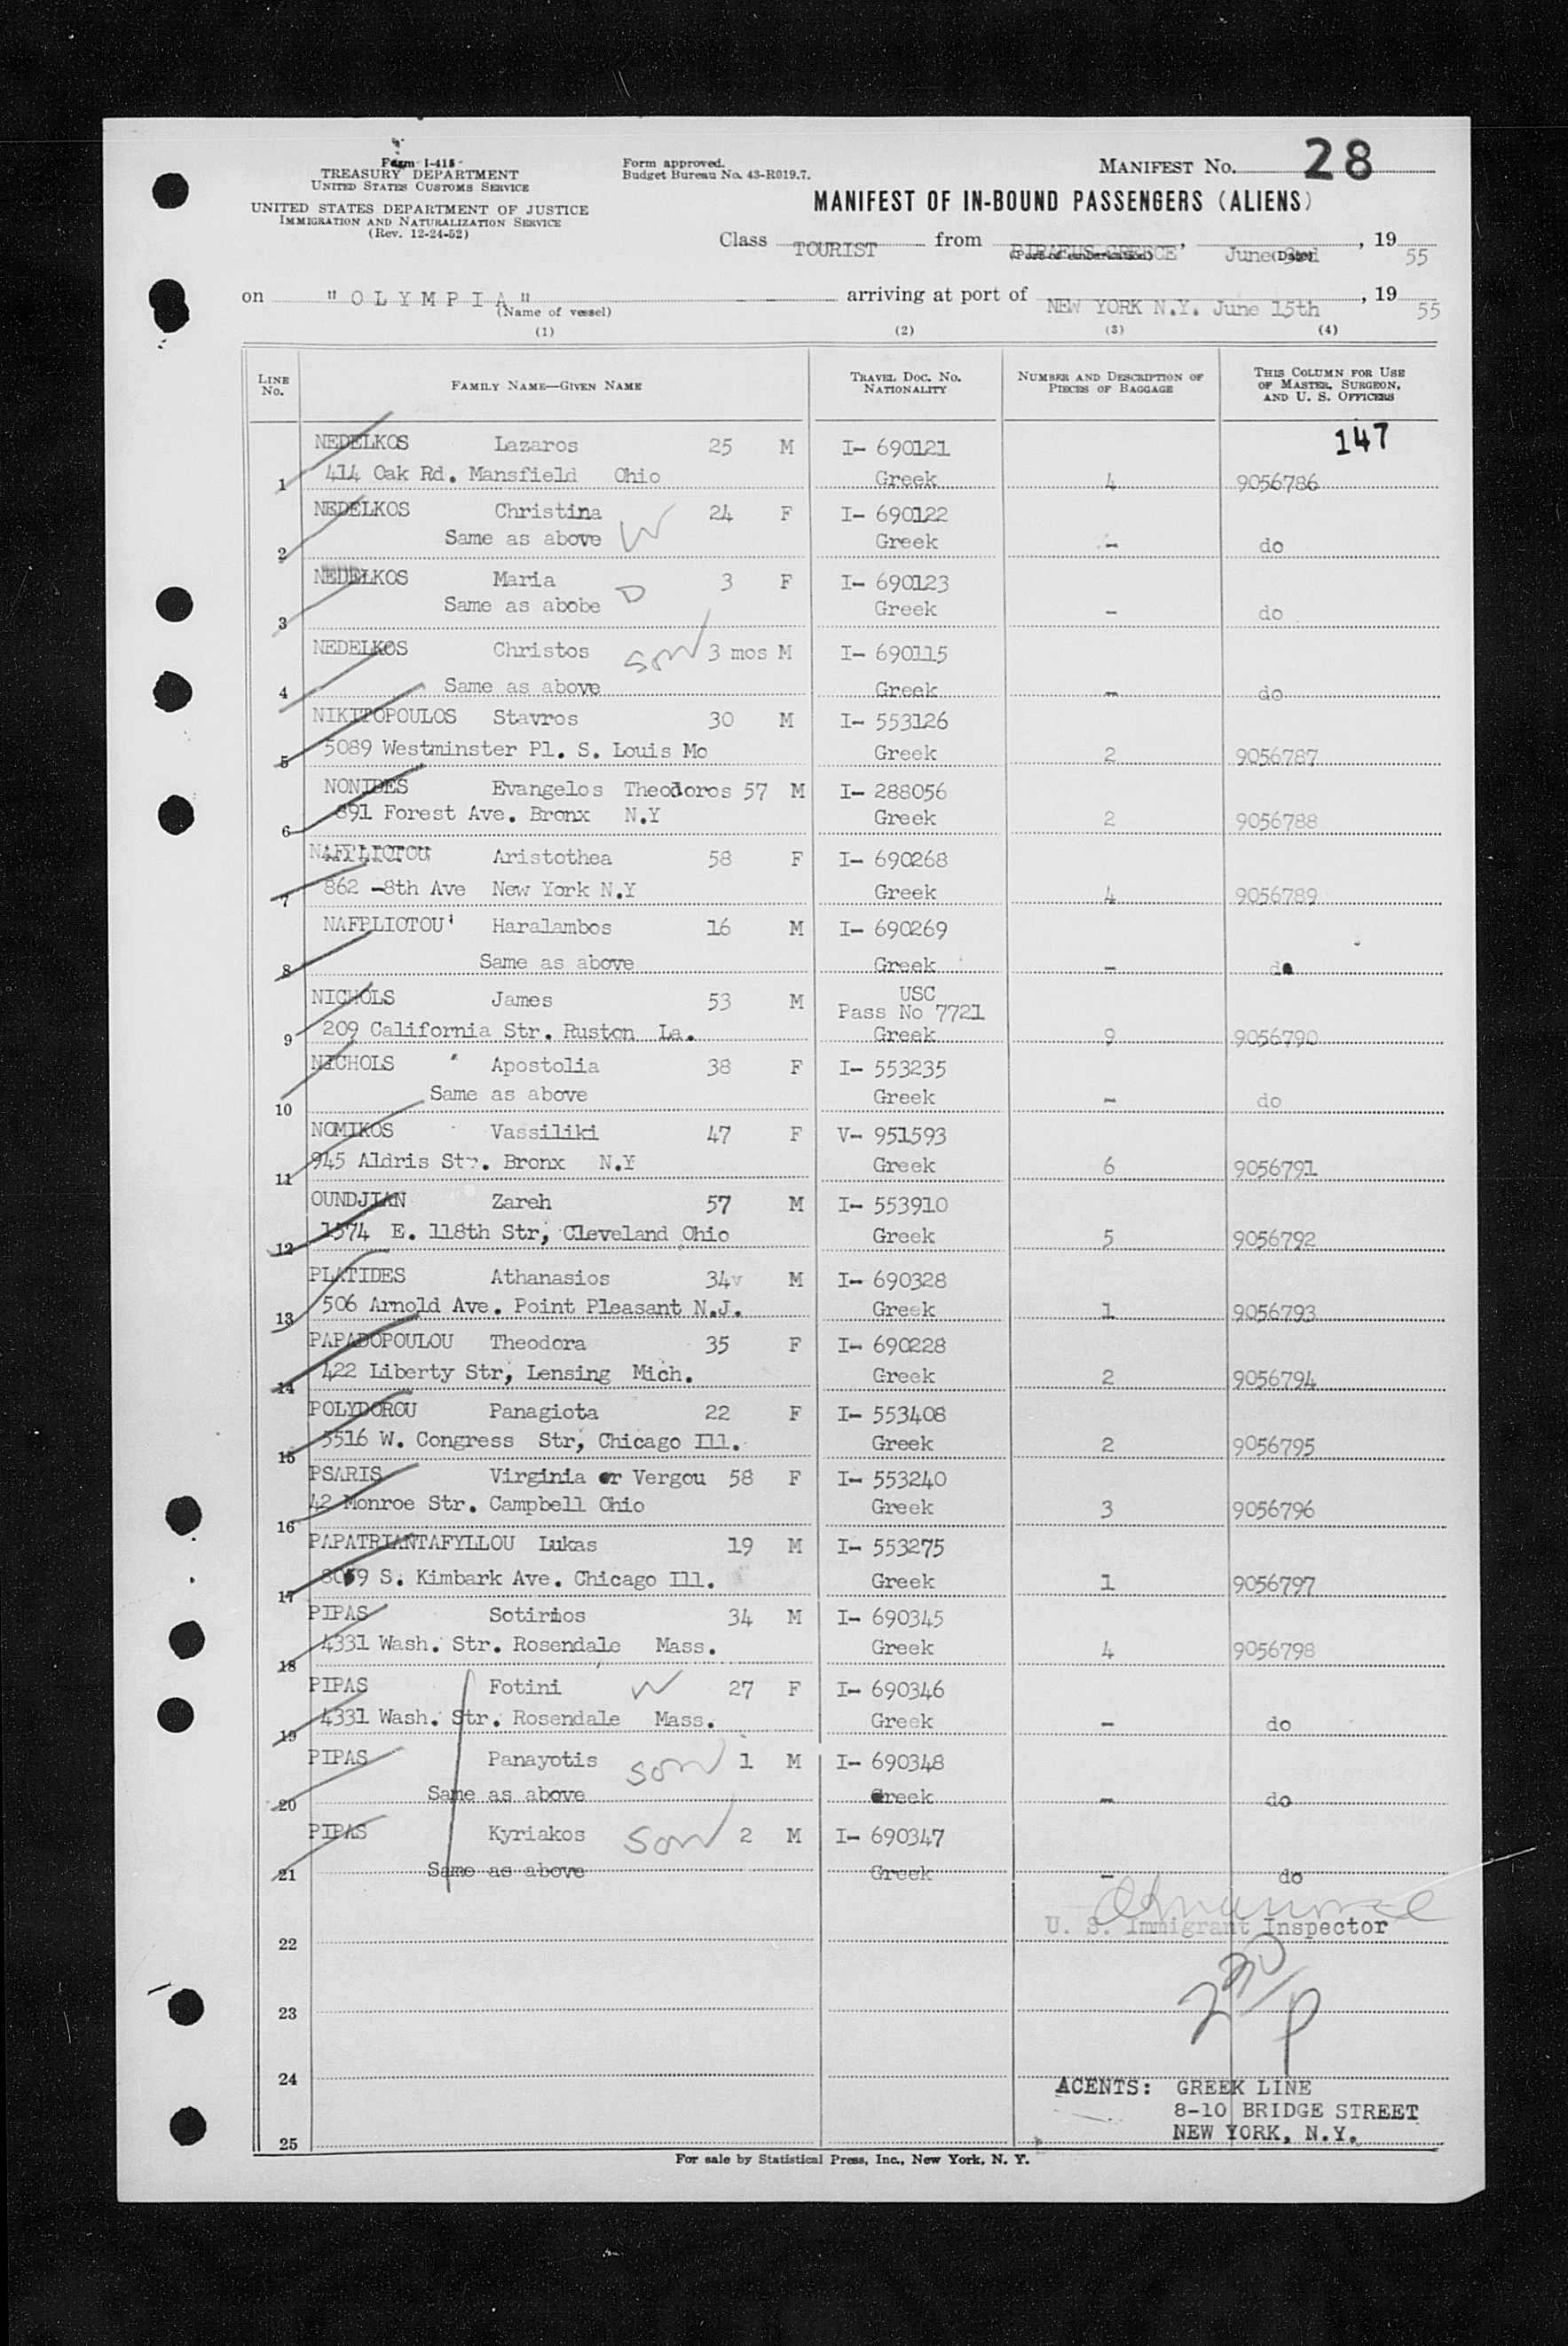 Form I-415
TREASURY DEPARTMENT
UNITED STATES CUSTOMS SERVICE
UNITED STATES DEPARTMENT OF JUSTICE
IMMIGRATION AND NATURALIZATION SERVICE
(Rev. 12-24-52)
Form approved.
Budget Bureau No. 43-R019.7.
MANIFEST No. 28
MANIFEST OF IN-BOUND PASSENGERS (ALIENS)
Class TOURIST from PIRAEUS GREECE, June 3rd, 19 55
(Port of embarkation) (Date)
on "OLYMPIA" arriving at port of NEW YORK N.Y. June 15th, 19 55
(Name of vessel)
(1) (2) (3) (4)
LINE No. FAMILY NAME—GIVEN NAME TRAVEL DOC. NO. NATIONALITY NUMBER AND DESCRIPTION OF PIECES OF BAGGAGE THIS COLUMN FOR USE OF MASTER, SURGEON, AND U. S. OFFICERS
147
NEDELKOS Lazaros 25 M I- 690121
1 414 Oak Rd. Mansfield Ohio Greek 4 9056786
NEDELKOS Christina 24 F I- 690122
2 Same as above W Greek - do
NEDELKOS Maria 3 F I- 690123
3 Same as abobe D Greek - do
NEDELKOS Christos son 3 mos M I- 690115
4 Same as above Greek - do
NIKITOPOULOS Stavros 30 M I- 553126
5 5089 Westminster Pl. S. Louis Mo Greek 2 9056787
NONIDES Evangelos Theodoros 57 M I- 288056
6 891 Forest Ave. Bronx N.Y Greek 2 9056788
NAFPLIOTOU Aristothea 58 F I- 690268
7 862 -8th Ave New York N.Y Greek 4 9056789
NAFPLIOTOU' Haralambos 16 M I- 690269
8 Same as above Greek - do
NICHOLS James 53 M USC
Pass No 7721
9 209 California Str. Ruston La. Greek 9 9056790
NICHOLS Apostolia 38 F I- 553235
10 Same as above Greek - do
NOMIKOS Vassiliki 47 F V- 951593
11 945 Aldris Str. Bronx N.Y Greek 6 9056791
OUNDJIAN Zareh 57 M I- 553910
12 1574 E. 118th Str, Cleveland Ohio Greek 5 9056792
PLATIDES Athanasios 34 M I- 690328
13 506 Arnold Ave. Point Pleasant N.J. Greek 1 9056793
PAPADOPOULOU Theodora 35 F I- 690228
14 422 Liberty Str, Lensing Mich. Greek 2 9056794
POLYDOROU Panagiota 22 F I- 553408
15 5516 W. Congress Str, Chicago Ill. Greek 2 9056795
PSARIS Virginia or Vergou 58 F I- 553240
16 42 Monroe Str. Campbell Ohio Greek 3 9056796
PAPATRIANTAFYLLOU Lukas 19 M I- 553275
17 S. Kimbark Ave. Chicago Ill. Greek 1 9056797
PIPAS Sotirios 34 M I- 690345
18 4331 Wash. Str. Rosendale Mass. Greek 4 9056798
PIPAS Fotini W 27 F I- 690346
19 4331 Wash. Str. Rosendale Mass. Greek - do
PIPAS Panayotis son 1 M I- 690348
20 Same as above Greek - do
PIPAS Kyriakos son 2 M I- 690347
21 Same as above Greek - do
U. S. Immigrant Inspector
22
23 2 30/P
24
AGENTS: GREEK LINE
8-10 BRIDGE STREET
NEW YORK, N.Y.
25
For sale by Statistical Press, Inc., New York, N. Y.